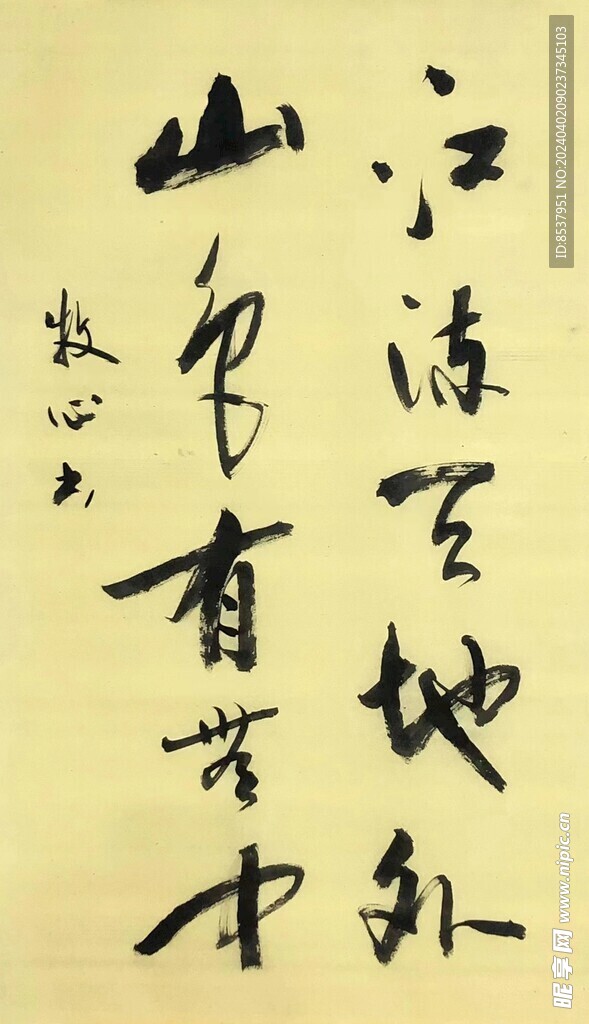 江流天地外
山色有無中
牧心书
ID:8537951 NO:20240402090237345103
昵享网 www.nipic.cn